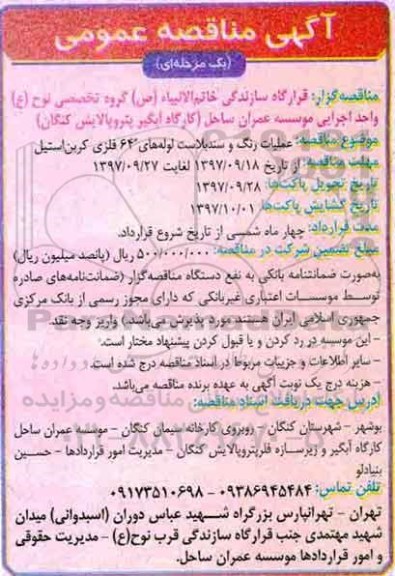 آگهی مناقصه عمومی
(یک مرحله‌ای)
مناقصه‌گزار: قرارگاه سازندگی خاتم‌الانبیاء (ص) گروه تخصصی نوح (ع)
واحد اجرایی موسسه عمران ساحل (کارگاه آبگیر پتروپالایش کنگان)
موضوع مناقصه: عملیات رنگ و سندبلاست لوله‌های ۶۴ فلزی کربن‌استیل
مهلت مناقصه: از تاریخ ۱۳۹۷/۰۹/۱۸ لغایت ۱۳۹۷/۰۹/۲۷
تاریخ تحویل پاکت‌ها: ۱۳۹۷/۰۹/۲۸
تاریخ گشایش پاکت‌ها: ۱۳۹۷/۱۰/۰۱
مدت قرارداد: چهار ماه شمسی از تاریخ شروع قرارداد.
مبلغ تضمین شرکت در مناقصه: ۵۰۰/۰۰۰/۰۰۰ ریال (پانصد میلیون ریال)
به‌صورت ضمانتنامه بانکی به نفع دستگاه مناقصه‌گزار (ضمانت‌نامه‌های صادره
توسط موسسات اعتباری غیربانکی که دارای مجوز رسمی از بانک مرکزی
جمهوری اسلامی ایران هستند مورد پذیرش می‌باشد) واریز وجه نقد.
- این موسسه در رد کردن و یا قبول کردن پیشنهاد مختار است.
- سایر اطلاعات و جزییات مربوط در اسناد مناقصه درج شده است.
- هزینه درج یک نوبت آگهی به عهده برنده مناقصه می‌باشد.
آدرس جهت دریافت اسناد مناقصه:
بوشهر - شهرستان کنگان - روبروی کارخانه سیمان کنگان - موسسه عمران ساحل
کارگاه آبگیر و زیرسازه فلرپتروپالایش کنگان - مدیریت امور قراردادها - حسین
بنیادلو
تلفن تماس: ۰۹۳۸۶۹۴۵۴۸۴ - ۰۹۱۷۳۵۱۰۶۹۸
تهران - تهرانپارس بزرگراه شهید عباس دوران (اسبدوانی) میدان
شهید مهتمدی جنب قرارگاه سازندگی قرب نوح(ع) - مدیریت حقوقی
و امور قراردادها موسسه عمران ساحل.